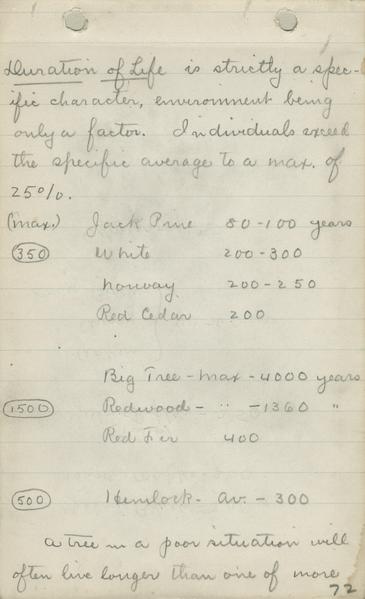 Duration of Life is strictly a spec-
ific character, environment being
only a factor. Individuals exceed
the specific average to a max. of
25%.
(max.) Jack Pine 80-100 years
350 White 200-300
Norway 200-250
Red Cedar 200
Big Tree - Max - 4000 years
1500 Redwood - " - 1360 "
Red Fir 400
500 Hemlock - Av. - 300
A tree in a poor situation will
often live longer than one of more
72